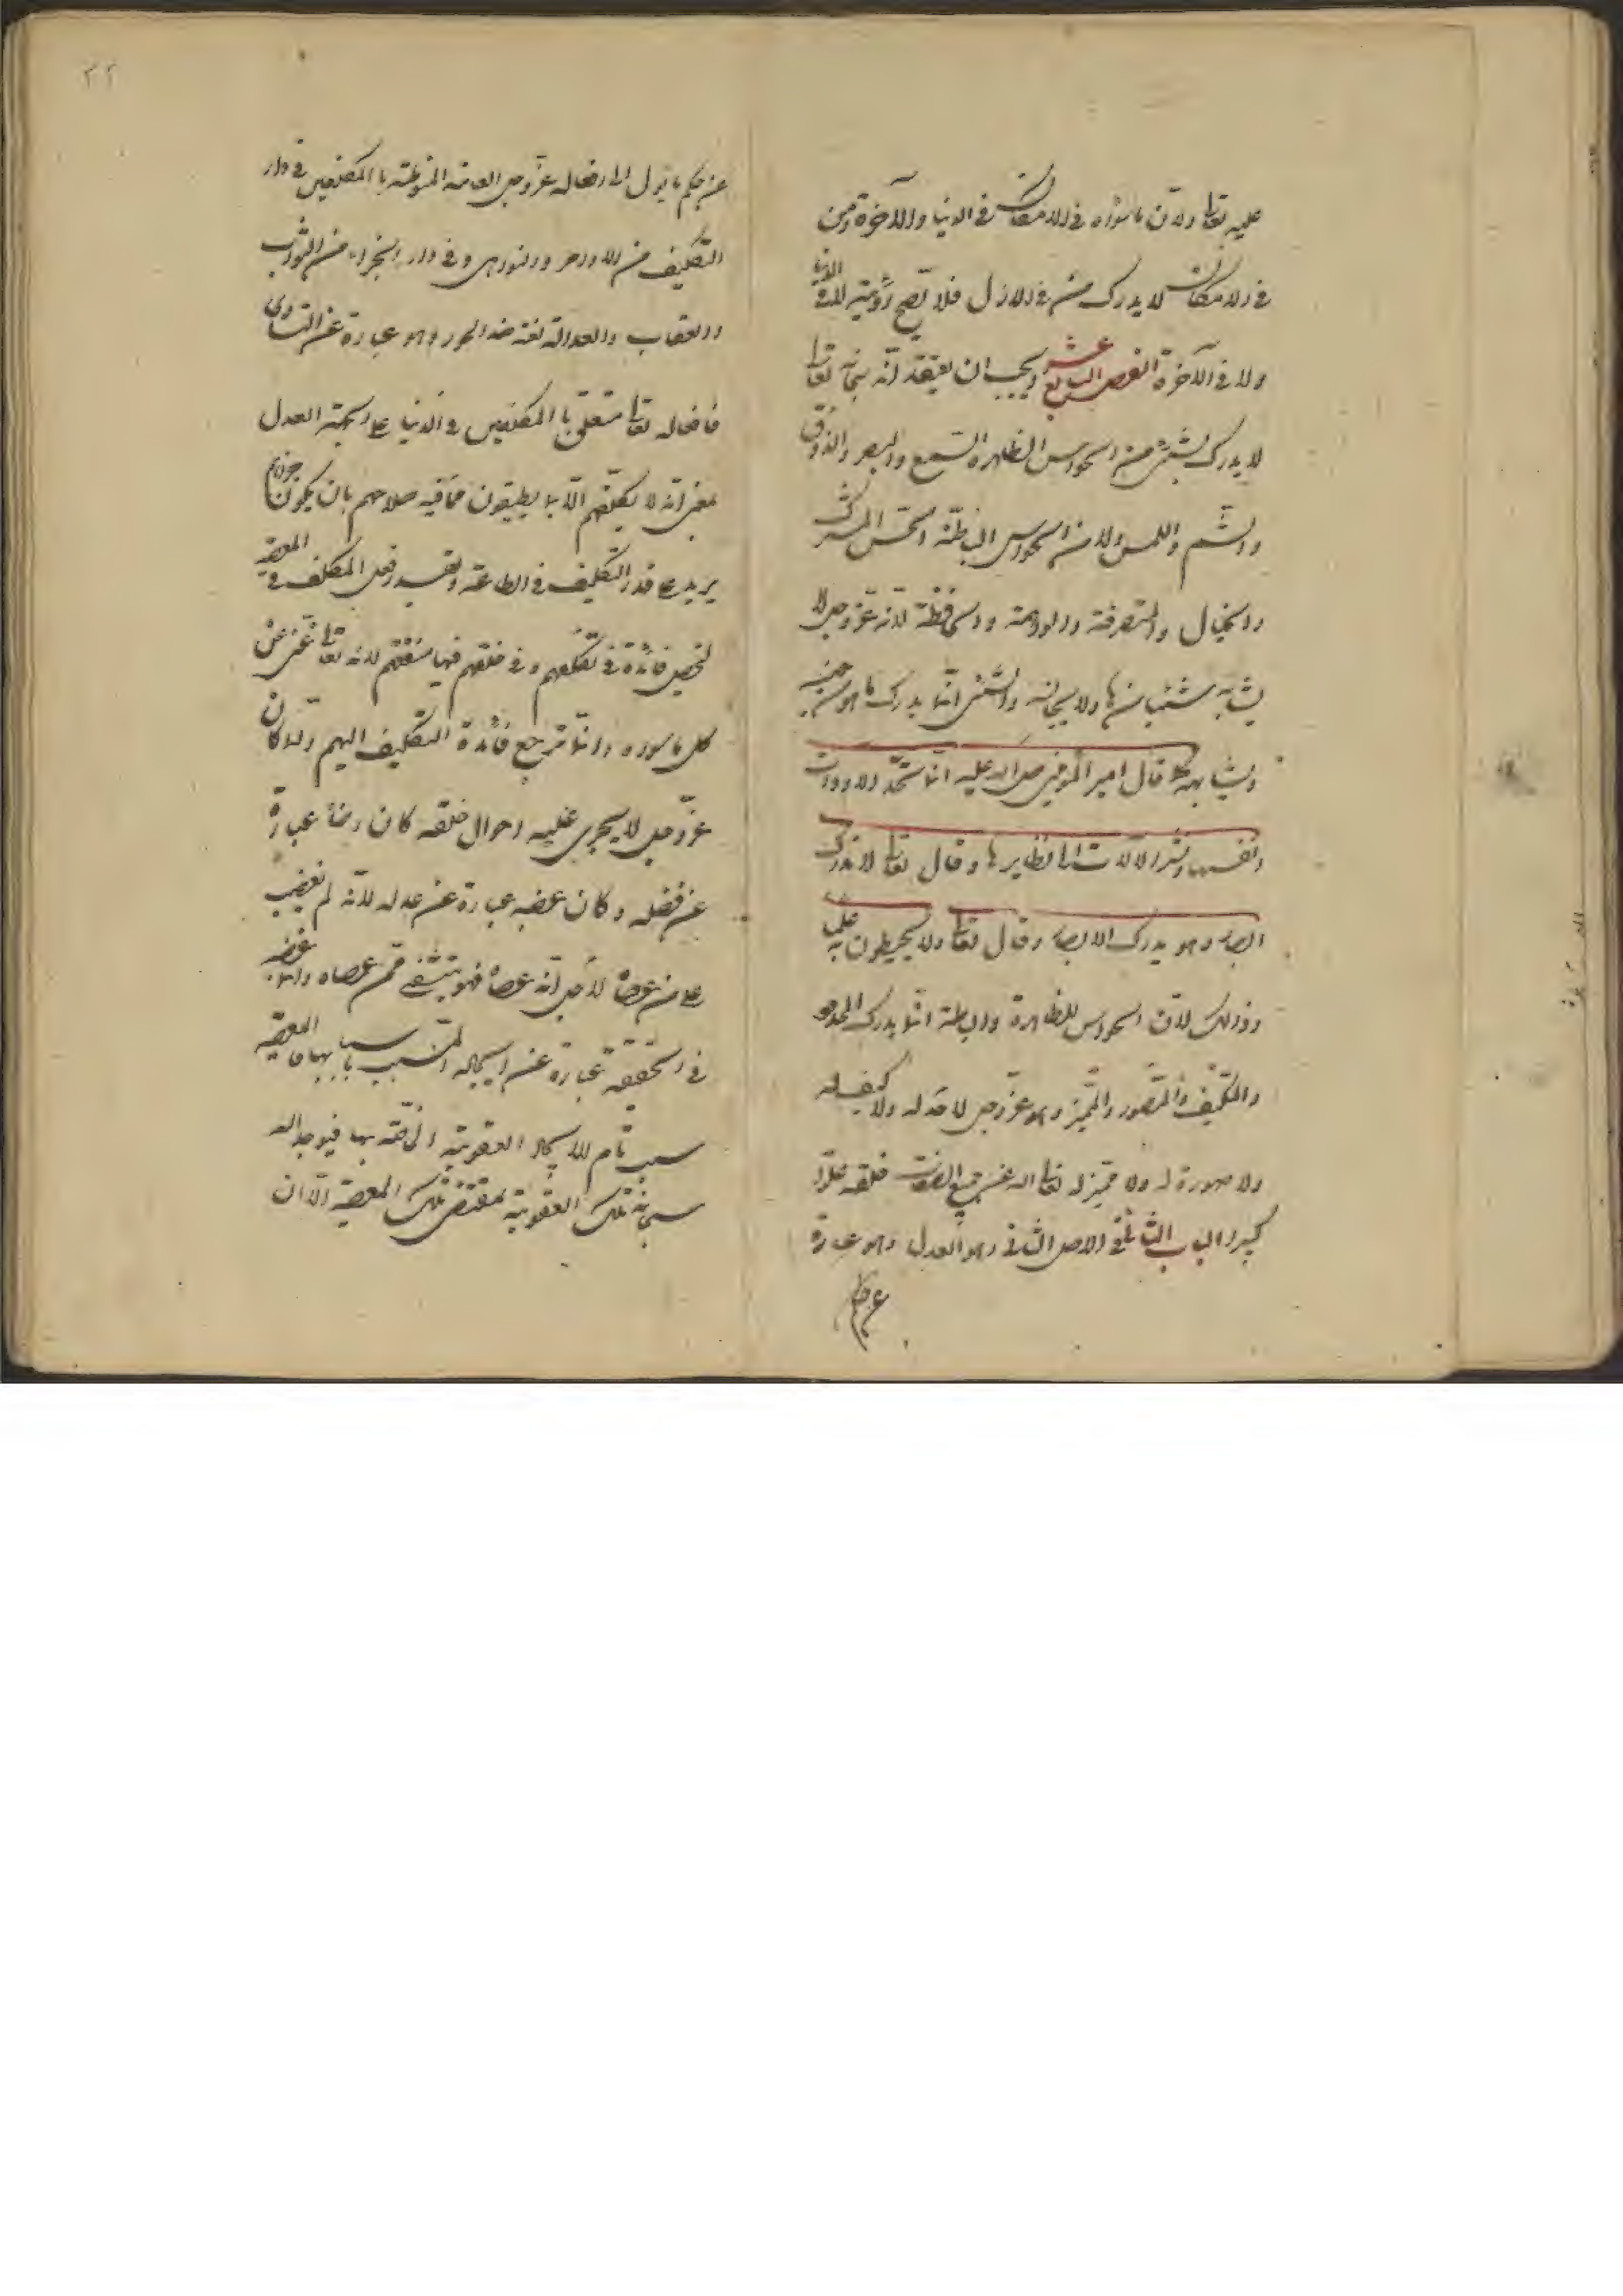 عليه تعالى ولان ما سواه في الامكان في الدنيا والآخرة ومن
في الامكان لا يدرك من في الازل فلا تصح رؤيته لا في الدنيا
ولا في الآخرة الفصل السابع عشر ويجب ان يعتقد انه سبحانه تعالى
لا يدرك بشئ من الحواس الظاهرة السمع والبصر والذوق
والشم واللمس ولا من الحواس الباطنة الحس المشترك
والخيال والمتصرفة والواهمة والحافظة لانه عز وجل لا
يشابه شيئا منها ولا يجانسه والشئ انما يدرك ما هو من جنسه
ويشابهه كما قال امير المؤمنين صلى الله عليه انما تحد الادوات
انفسها وتشير الآلات الى نظايرها وقال تعالى لا تدركه
الابصار وهو يدرك الابصار وقال تعالى ولا يحيطون به علما
وذلك لان الحواس الظاهرة والباطنة انما يدرك المحدود
والمكيف والمصور والمميز وهو عز وجل لا حد له ولا كيف له
ولا صورة له ولا مميز له تعالى الله عن جميع صفات خلقه علوا
كبيرا الباب الثاني في الاصل الثاني وهو العدل وهو عبارة
عن حكم
٢٢
عن حكم ما يؤل الى افعاله عز وجل العامة المنوطة با المكلفين في دار
التكليف من الاوامر والنواهي وفي دار الجزاء من الثواب
والعقاب والعدالة لغة ضد الجور وهو عبارة عن التساوي
فافعاله تعالى متعلق با المكلفين في الدنيا على جهة العدل
بمعنى انه لا يكلفهم الا بما يطيقون مما فيه صلاحهم بان يكون جزاؤهم
يزيد على قدر التكليف في الطاعة وبقدر فعل المكلف في المعصية
لتحصيل فائدة في تكلفهم وفي خلقهم فيها منفعتهم لانه تعالى غني عن
كل ما سواه وانما ترجع فائدة التكليف اليهم ولما كان
عز وجل لا يجري عليه احوال خلقه كان رضاه عبارة
عن فضله وكان غضبه عبارة عن عدله لانه لم يغضب
على من عصاه لاجل انه عصاه فهو يتشفى ممن عصاه وانما غضبه
في الحقيقة عبارة عن ايجاده المسبب باسبابها فالمعصية
سبب تام لايجاد العقوبة الخاصة بها فيوجد الله
سبحانه تلك العقوبة بمقتضى تلك المعصية الا ان